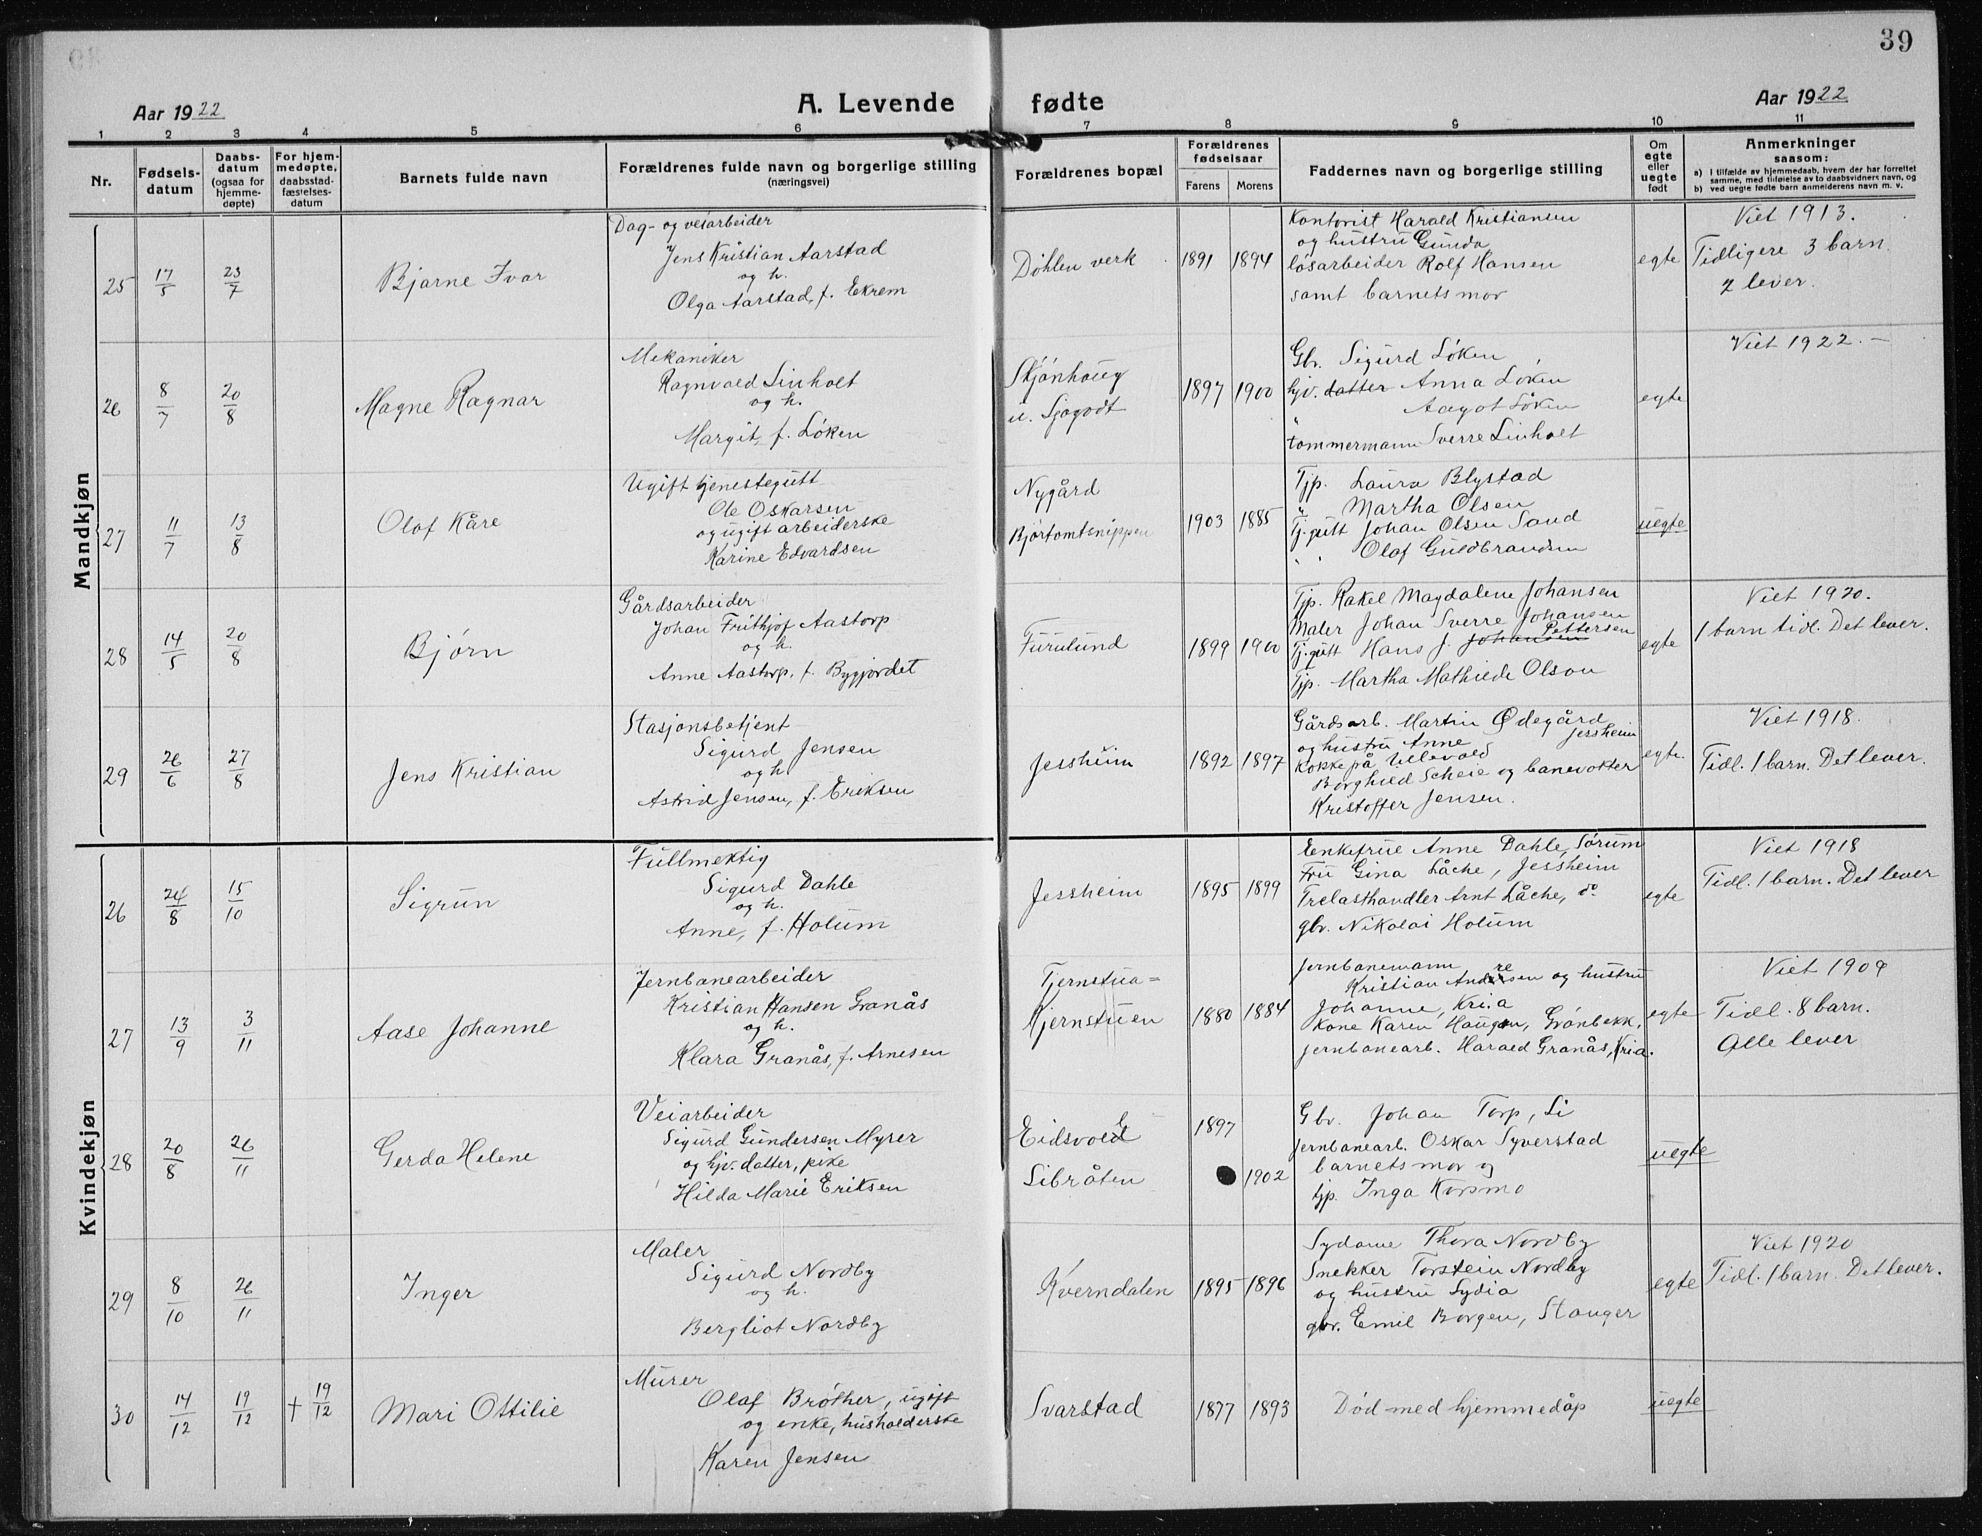 39
Aar 1922
A. Levende fødte
Aar 1922
1 2 3 4 5 6 7 8 9 10 11
Nr.
Fødsels-
datum
Daabs-
datum
(ogsaa for
hjemme-
døpte)
For hjem-
medøpte,
daabsstad-
fæstelses-
datum
Barnets fulde navn
Forældrenes fulde navn og borgerlige stilling
(næringsvei)
Forældrenes bopæl
Forældrenes
fødselsaar
Farens Morens
Faddernes navn og borgerlige stilling
Om
egte
eller
uegte
født
Anmerkninger
saasom:
a) I tilfælde av hjemmedaab, hvem der har forrettet
samme, med tilføielse av to daabsvidners navn, og
b) ved uegte fødte barn anmelderens navn m. v.
Mandkjøn
25
17/5
23/7
Bjarne Ivar
Dag- og veiarbeider
Jens Kristian Aarstad
og h.
Olga Aarstad, f. Ekrem
Døhlen verk
1891 1894
Kontorist Harald Kristiansen
og hustru Gunda
løsarbeider Rolf Hansen
samt barnets mor
egte
Viet 1913.
Tidligere 3 barn.
2 lever.
26
8/7
20/8
Magne Ragnar
Mekaniker
Ragnvald Linholt
og h.
Margit, f. Løken
Skjønhaug
u. Sjøgodt
1897 1900
Gbr. Sigurd Løken
hjv. datter Anna Løken
" Aagot Løken
tømmermann Sverre Linholt
egte
Viet 1922. –
27
11/7
13/8
Olaf Kåre
Ugift tjenestegutt
Ole Oskarsen
og ugift arbeiderske
Karine Edvardsen
Nygård
Bjørtomtsnippen
1903 1885
Tjp. Laura Blystad
" Martha Olsen
Tj.gutt Johan Olsen Sand
" Olaf Guldbrandsen
uegte
28
14/5
20/8
Bjørn
Gårdsarbeider
Johan Frithjof Aastorp
og h.
Anne Aastorp, f. Bygjordet
Furulund
1899 1900
Tjp. Rakel Magdalene Johansen
Maler Johan Sverre Johansen
Tj.gutt Hans J. Johansen Pettersen
Tjp. Martha Mathilde Olson
egte
Viet 1920.
1 barn tidl. Det lever.
29
26/6
27/8
Jens Kristian
Stasjonsbetjent
Sigurd Jensen
og h.
Astrid Jensen, f. Eriksen
Jessheim
1892 1897
Gårdsarb. Martin Ødegård
og hustru Anne Jessheim
Kokke på Ullevold
Borghild Scheie og banevokter
Kristoffer Jensen.
egte.
Viet 1918.
Tidl. 1 barn. Det lever.
Kvindekjøn
26
24/8
15/10
Sigrun
Fullmektig
Sigurd Dahle
og h.
Anne, f. Holum
Jessheim
1895 1899
Eenkefrue Anne Dahle, Sørum
Fru Gina Låche, Jessheim
Trelasthandler Arnt Låche, do
gbr. Nikolai Holum
egte
Viet 1918
Tidl. 1 barn. Det lever
27
13/9
3/11
Aase Johanne
Jernbanearbeider
Kristian Hansen Granås
og h.
Klara Granås, f. Arnesen
Tjernstua =
Kjernstuen
1880 1884
Jernbanemann
Kristian Andresen og hustru
Johanne, Kria
Kone Karen Haugen, Grønbekk,
jernbanearb. Harald Granås, Kria.
egte
Viet 1904
Tidl. 8 barn.
Alle lever
28
20/8
26/11
Gerda Helene
Veiarbeider
Sigurd Gundersen Myrer
og hjv. datter, pike
Hilda Marie Eriksen
Eidsvold
Libråten
1897
1902
Gbr. Johan Torp, Li
jernbanearb. Oskar Syverstad
barnets mor og
tjp. Inga Korsmo
uegte
29
8/10
26/11
Inger
Maler
Sigurd Nordby
og h.
Bergliot Nordby
Kverndalen
1895 1896
Sydame Thora Nordby
Snekker Torstein Nordby
og hustru Sydia
gbr. Emil Borgen, Stanger
egte
Viet 1920
Tidl. 1 barn. Det lever.
30
14/12
19/12
† 19/12
Mari Ottilie
Murer
Olaf Brøther, ugift
og enke, husholderske
Karen Jensen
Svarstad
1877 1893
Død med hjemmedåp
uegte